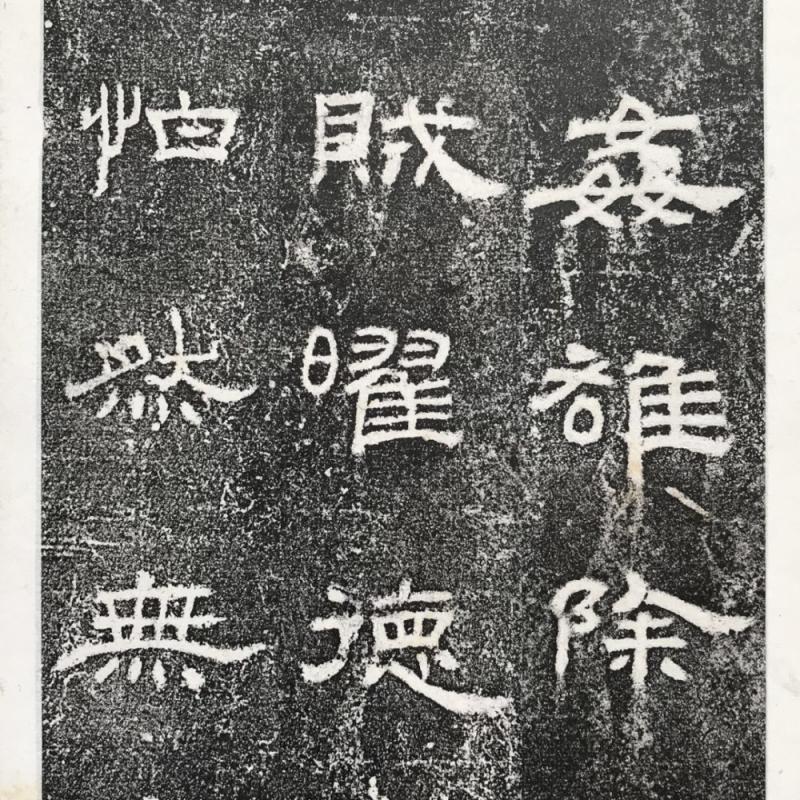 姦雄除
賊曜德
怕然無